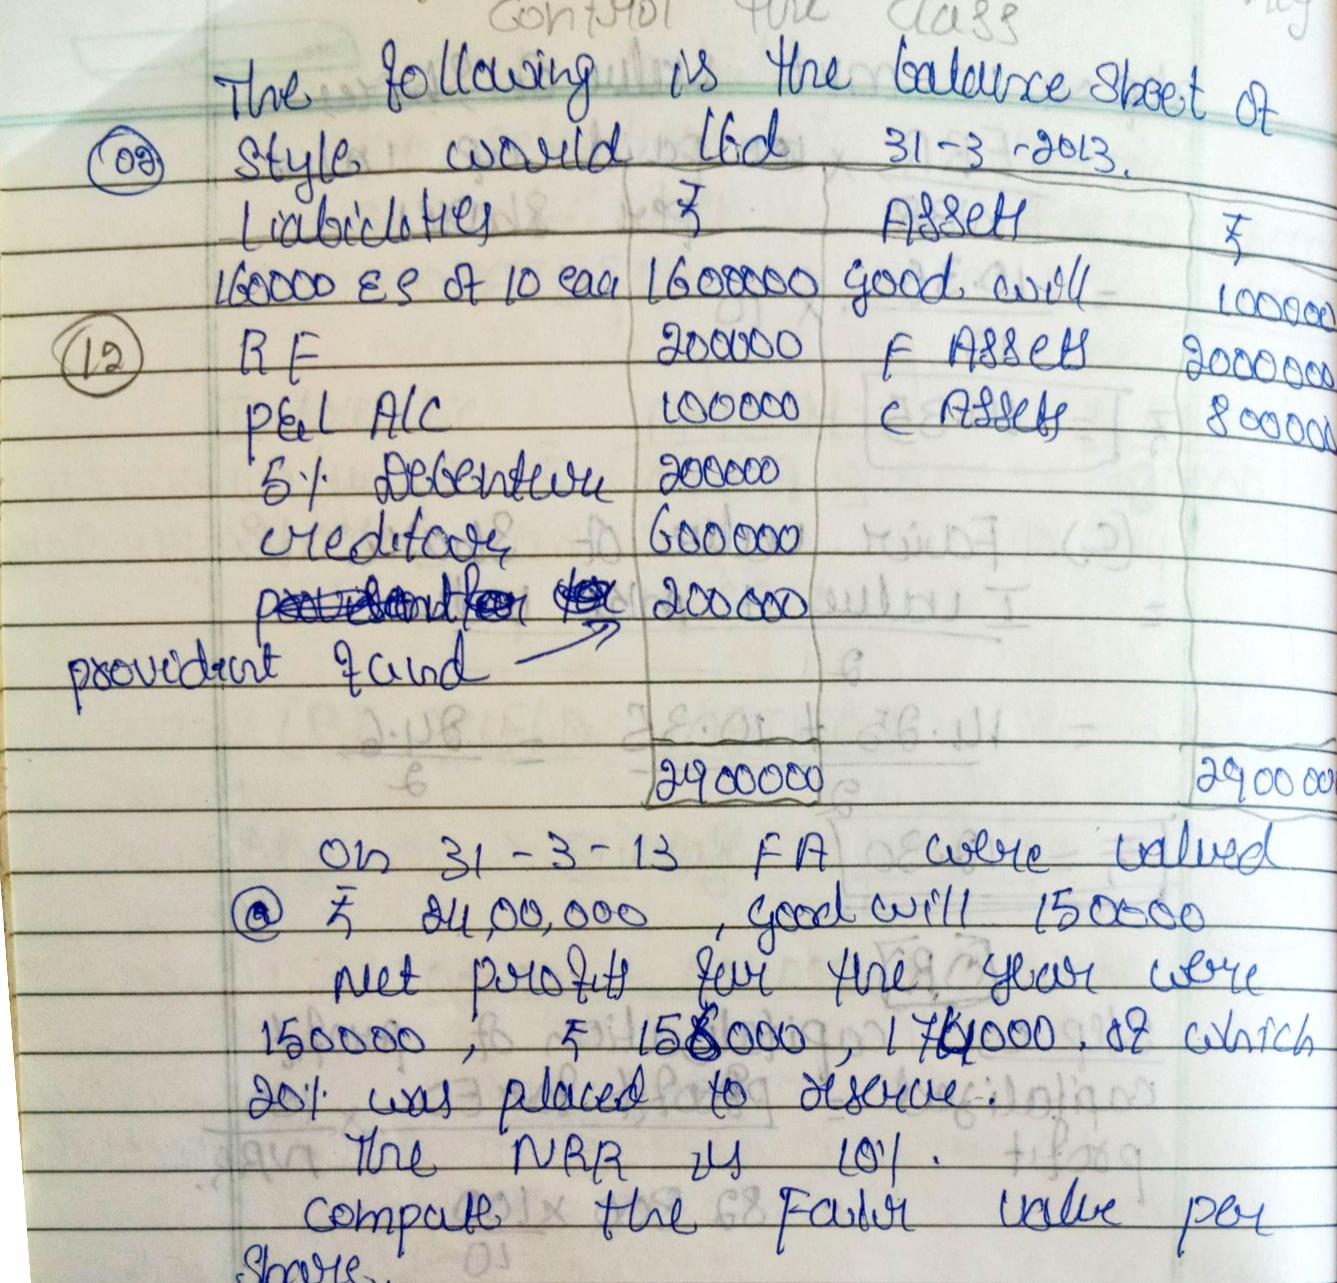 control the class
The following is the balance Sheet of
02 Style world ltd 31-3-2013.
Liabilities ₹ Assets ₹
160000 ES of 10 eaa 1600000 good will 100000
12 RF 200000 F Assets 2000000
P&L A/C 100000 C Assets 800000
5% Debenture 200000
creditors 600000
200000
provident fund
2900000 290000
On 31-3-13 FA were valued
@ ₹ 24,00,000, good will 150000
Net profit for the year were
150000, ₹ 158000, 174000. of which
20% was placed to reserve.
The NRR is 10%.
Compute the Fair value per
Share.